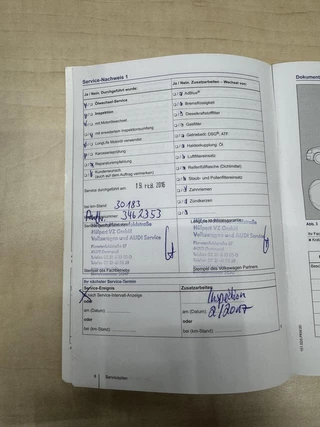 Service-Nachweis 1
Ja / Nein. Durchgeführt wurde:
Ölwechsel-Service
Inspektion
mit Motorölwechsel
mit erweitertem Inspektionsumfang
LongLife Motoröl verwendet
Fahrzeugprüfung
Reparaturempfehlung
Kundenwunsch
(auch auf dem Auftrag vermerken)
Service durchgeführt am:
19. FEB. 2016
bei km-Stand:
30183
3463353
Hülpert VZ GmbH
Volkswagen und AUDI Service
Stempel der Fachwerkstatt
Ja / Nein. Zusatzarbeiten – Wechsel von:
AdBlue®
Bremsflüssigkeit
Dieselkraftstofffilter
Gasfilter
Getriebeöl: DSG®, ATF
Haldexkupplung: Öl
Luftfiltereinsatz
Reifenfüllflasche (Dichtmittel)
Staub- und Pollenfiltereinsatz
Zahnriemen
Zündkerzen
Hülpert VZ GmbH
Volkswagen und AUDI Service
Stempel des Volkswagen Partners
Ihr nächster Service-Termin
Service-Ereignis
nach Service-Intervall-Anzeige
am (Datum):
oder
bei (km-Stand):
Zusatzarbeiten
Inspektion
2/2017
am (Datum):
oder
bei (km-Stand):
6 Serviceplan
Dokument
Abb. 3